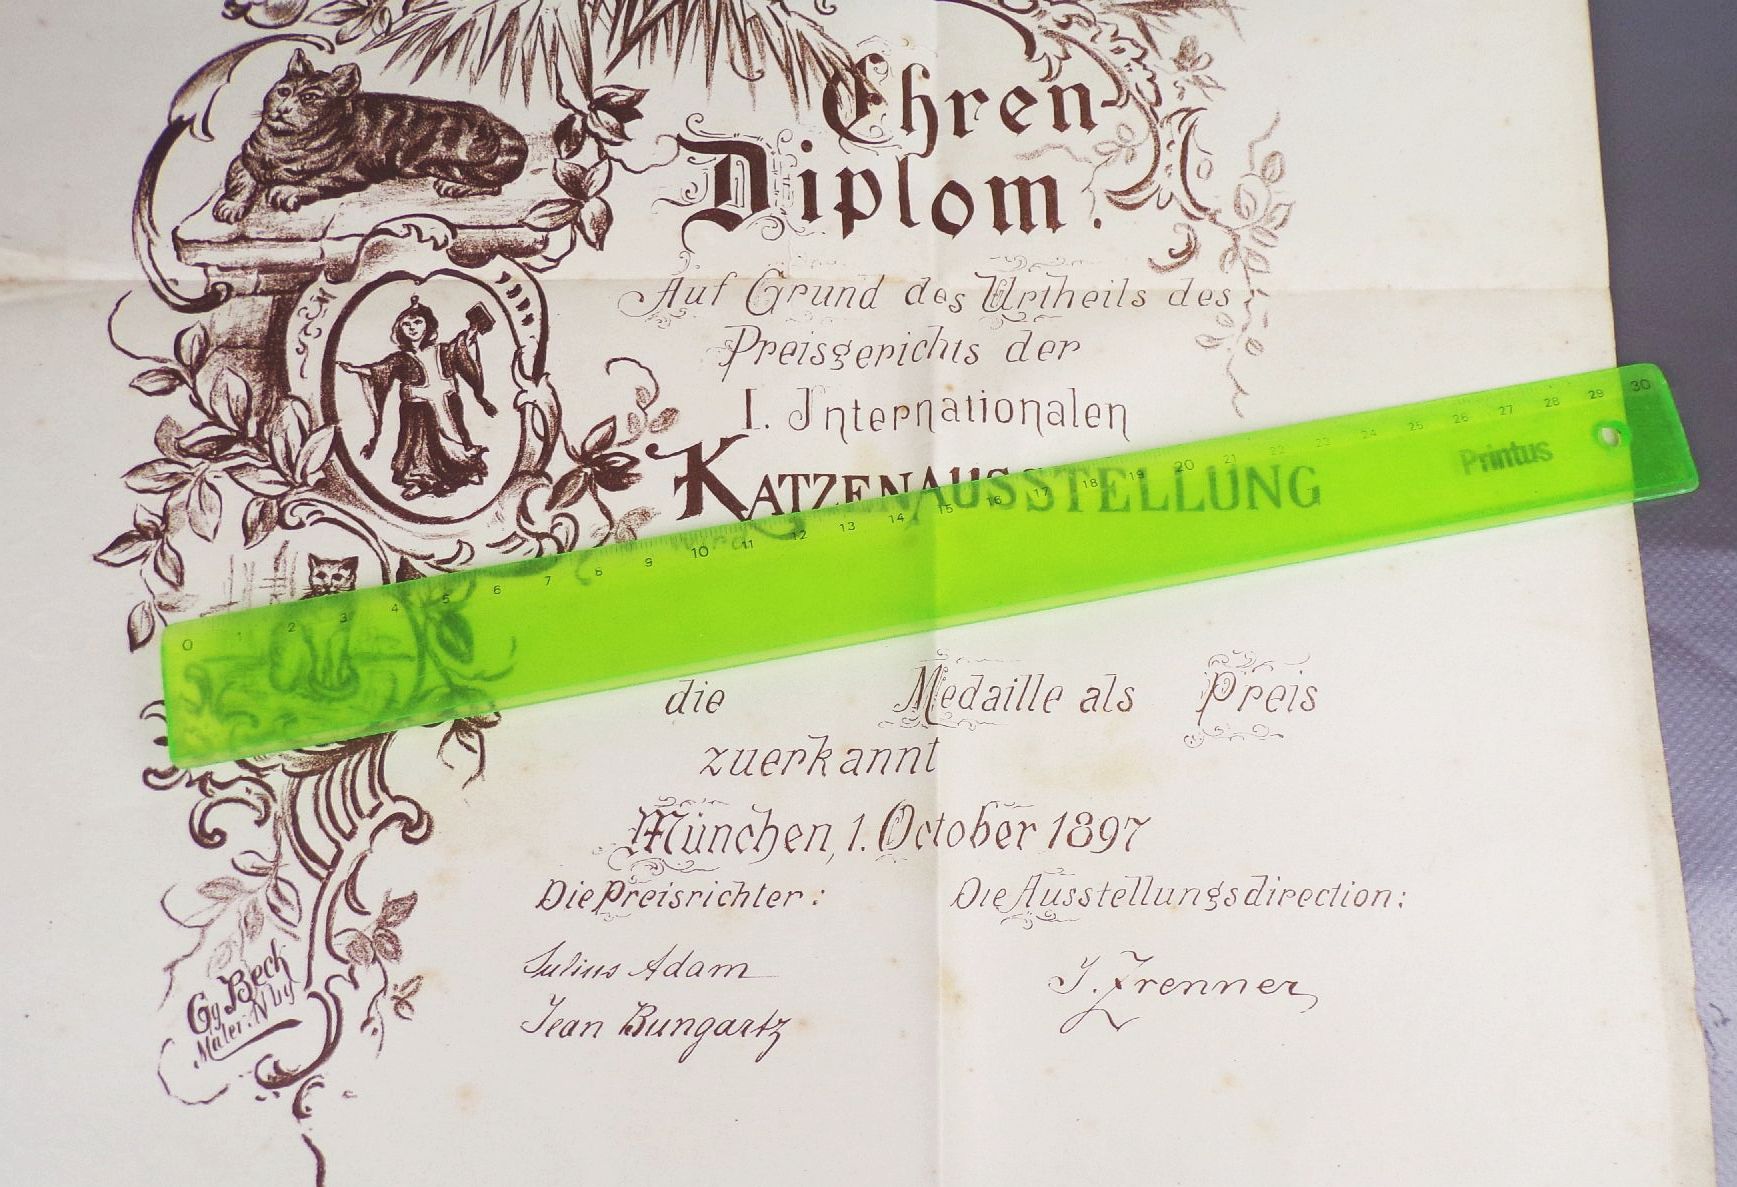 Ehren-
Diplom.
Auf Grund des Urtheils des
Preisgerichts der
I. Internationalen
KATZENAUSSTELLUNG
wird
0 1 2 3 4 5 6 7 8 9 10 11 12 13 14 15 16 17 18 19 20 21 22 23 24 25 26 27 28 29 30
Printus
die Medaille als Preis
zuerkannt
München, 1. October 1897
Die Preisrichter: Die Ausstellungsdirection:
Julius Adam
Jean Bungartz
J. Zrenner
Gg Beck
Maler: N'bg